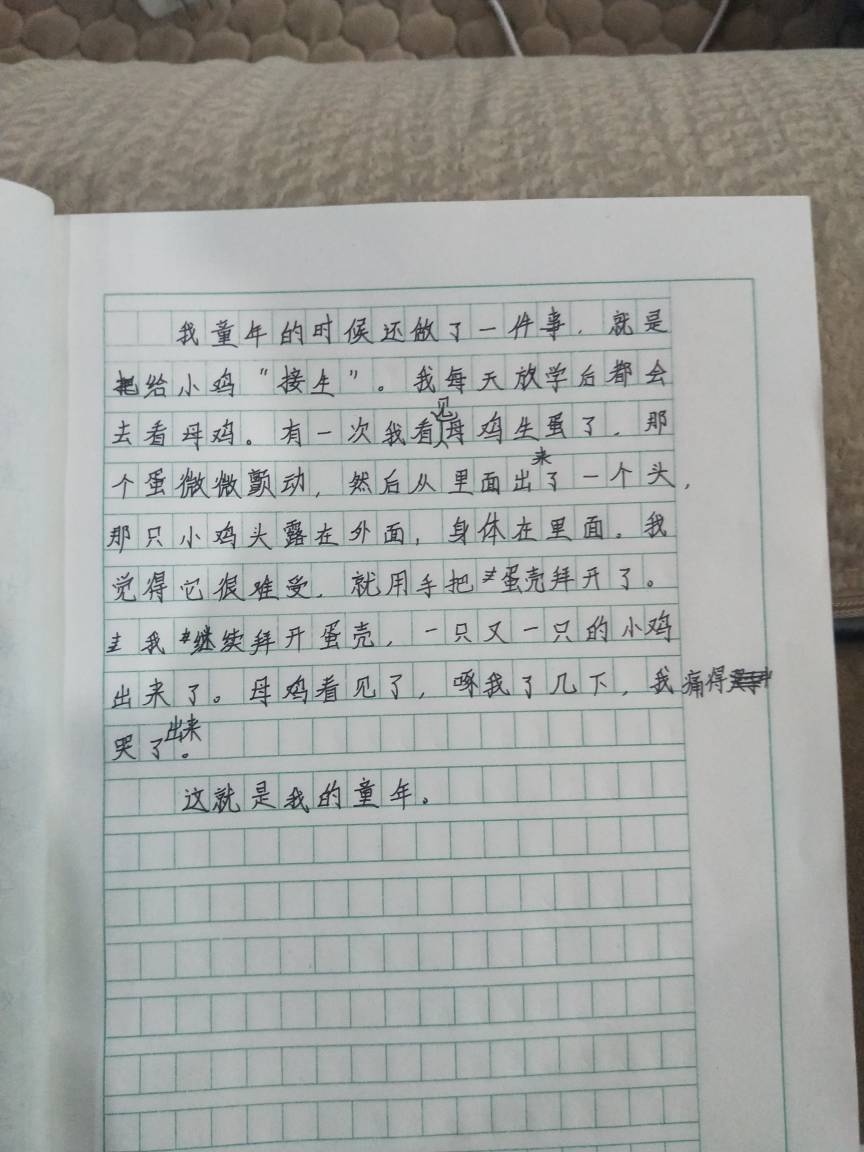 我童年的时候还做了一件事，就是
给小鸡“接生”。我每天放学后都会
去看母鸡。有一次我看见母鸡生蛋了，那
个蛋微微颤动，然后从里面出来了一个头，
那只小鸡头露在外面，身体在里面。我
觉得它很难受，就用手把蛋壳拜开了。
我继续拜开蛋壳，一只又一只的小鸡
出来了。母鸡看见了，啄我了几下，我痛得
哭了出来。
这就是我的童年。